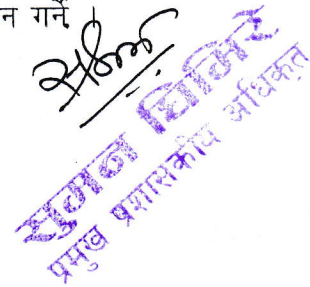 न गर्ने
सुमन घिमिरे
प्रमुख प्रशासकीय अधिकृत